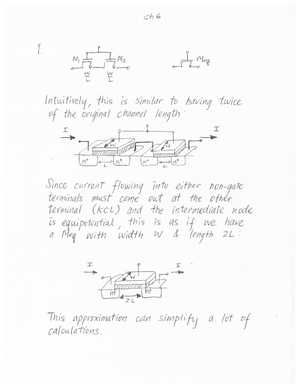 Ch 6
1.
M1 M2 Meq
W W
L L
Intuitively, this is similar to having twice
of the original channel length:
I I
W W
n+ L n+ n+ L n+
Since current flowing into either non-gate
terminals must come out at the other
terminal (KCL) and the intermediate node
is equipotential, this is as if we have
a Meq with width W & length 2L:
I I
W
n+ n+
2L
This approximation can simplify a lot of
calculations.